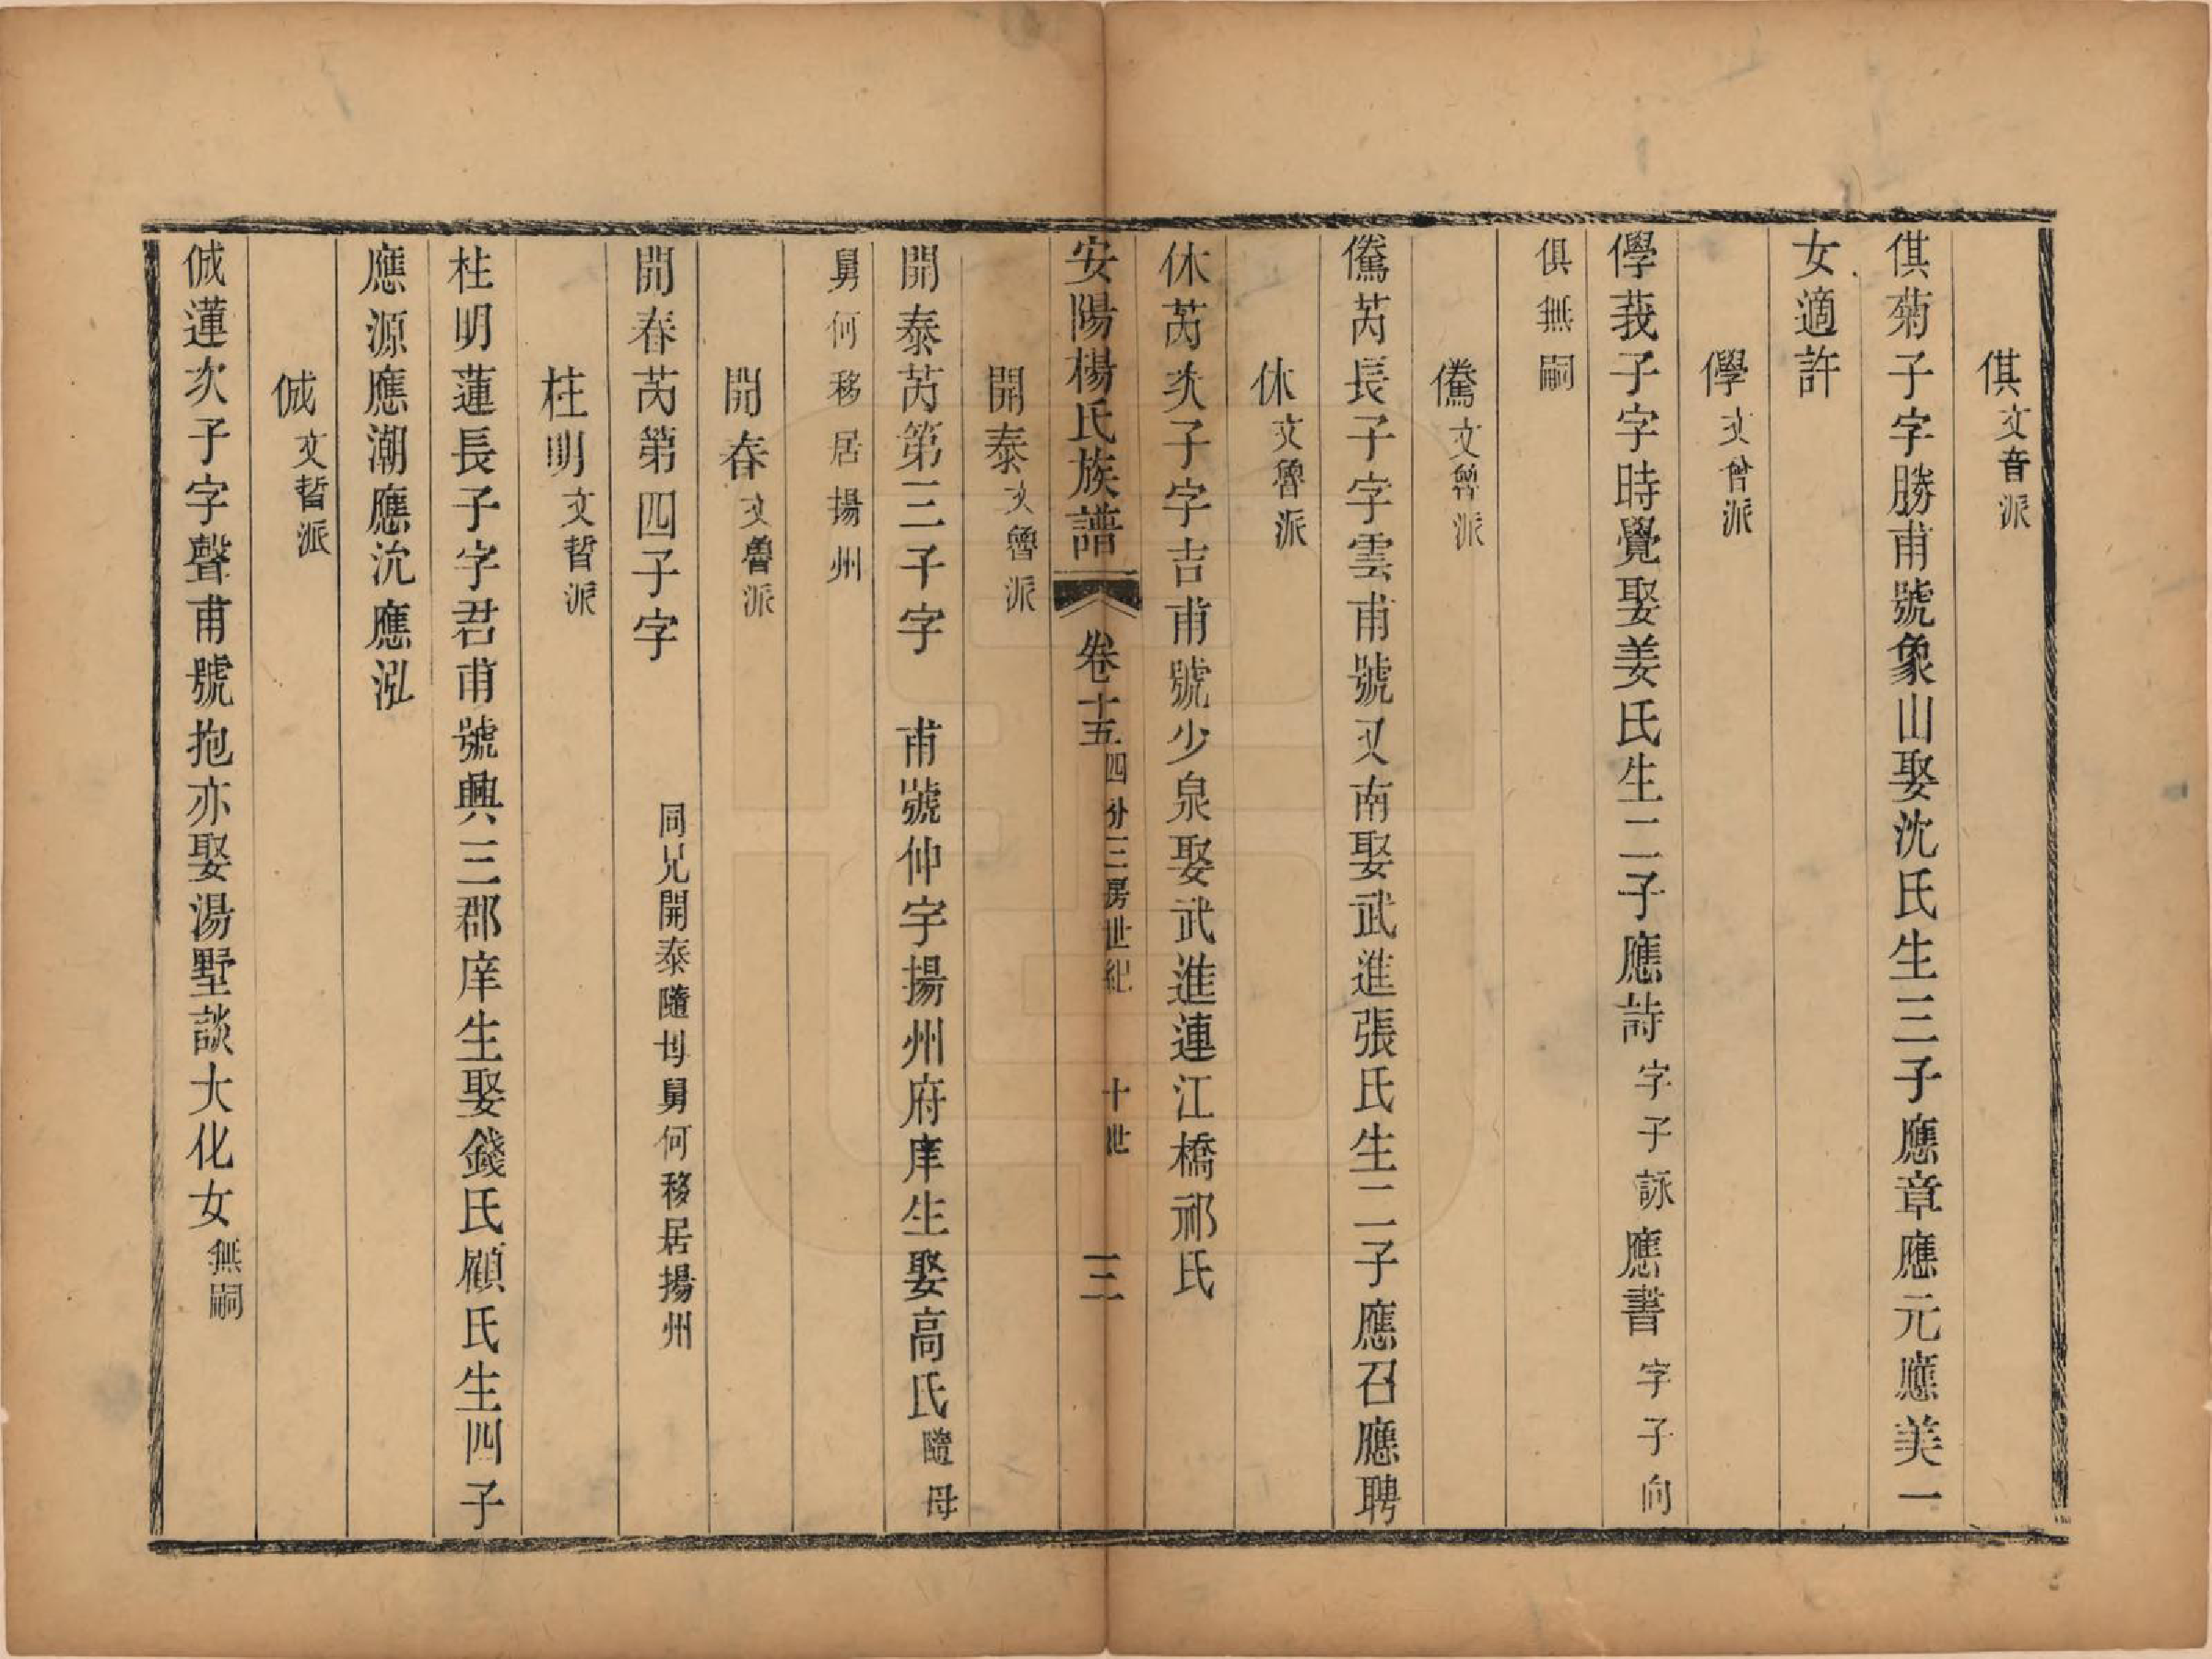 倛文音派
倛菊子字勝甫號象山娶沈氏生三子應章應元應美一
女適許
㑾文曾派
㑾莪子字時覺娶姜氏生二子應詩字子詠應書字子向
俱無嗣
儁文魯派
芮長子字雲甫號又南娶武進張氏生二子應召應聘
休文魯派
休芮次子字吉甫號少泉娶武進連江橋祁氏
安陽楊氏族譜 卷十五 四分三房世紀 十世 三
開泰文魯派
開泰芮第三子字 甫號仲宇揚州府庠生娶高氏隨母
舅何移居揚州
開春文魯派
開春芮第四子字 同兄開泰隨母舅何移居揚州
柱明文晢派
柱明蓮長子字君甫號興三郡庠生娶錢氏顧氏生四子
應源應潮應沇應泓
㑘文晢派
㑘蓮次子字聲甫號抱亦娶湯墅談大化女無嗣